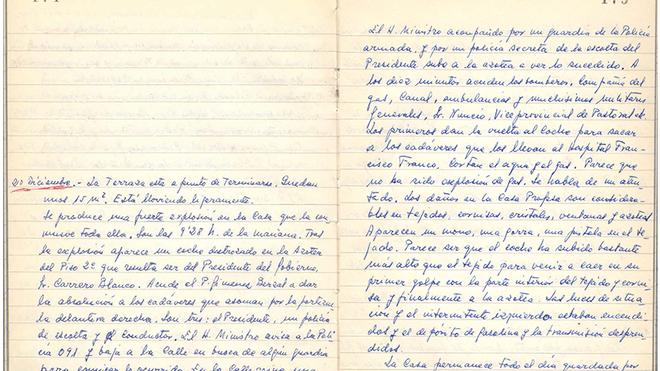 175
20 Diciembre.- La Terraza esta a punto de Terminarse. Quedan
unos 15 m². Está lloviendo ligeramente.
Se produce una fuerte explosión en la Casa que la con-
mueve toda ella. Son las 9'28 h. de la mañana. Tras
la explosión aparece un coche destrozado en la Azotea
del Piso 2º que resulta ser del Presidente del Gobierno,
Sr. Carrero Blanco. Acude el P. Jiménez Berzal a dar
la absolución a los cadáveres que asoman por la portezue-
la delantera derecha. Son tres: el Presidente, un policía
de escolta y el conductor. El H. Ministro avisa a la Poli-
cía 091 y baja a la Calle en busca de algún guardia
para comunicar lo ocurrido. En la Calle reina una
El H. Ministro acompañado por un guardia de la Policía
armada, y por un policía secreta de la escolta del
Presidente sube a la azotea a ver lo sucedido. A
los diez minutos acuden los bomberos, Compañía del
gas, Canal, ambulancias y muchísimos militares
Generales, Sr. Nuncio, Viceprovincial de Pastoral etc.
Los primeros dan la vuelta al Coche para sacar
a los cadáveres que los llevan al Hospital Fran-
cisco Franco, Cortan el agua y el gas. Parece que
no ha sido explosión de gas. Se habla de un aten-
tado. Los daños en la Casa Profesa son considera-
bles en tejados, cornisas, cristales, ventanas y azoteas
Aparecen una mano, una gorra, una pistola en el te-
jado. Parece ser que el coche ha subido bastante
más alto que el tejado para venir a caer en su
primer golpe con la parte interior del tejado y corni-
sa y finalmente a la azotea. Las luces de situa-
ción y el intermitente izquierdo estaban encendi-
dos y el depósito de gasolina y la transmisión despren-
didos.
La Casa permanece todo el día guardada por